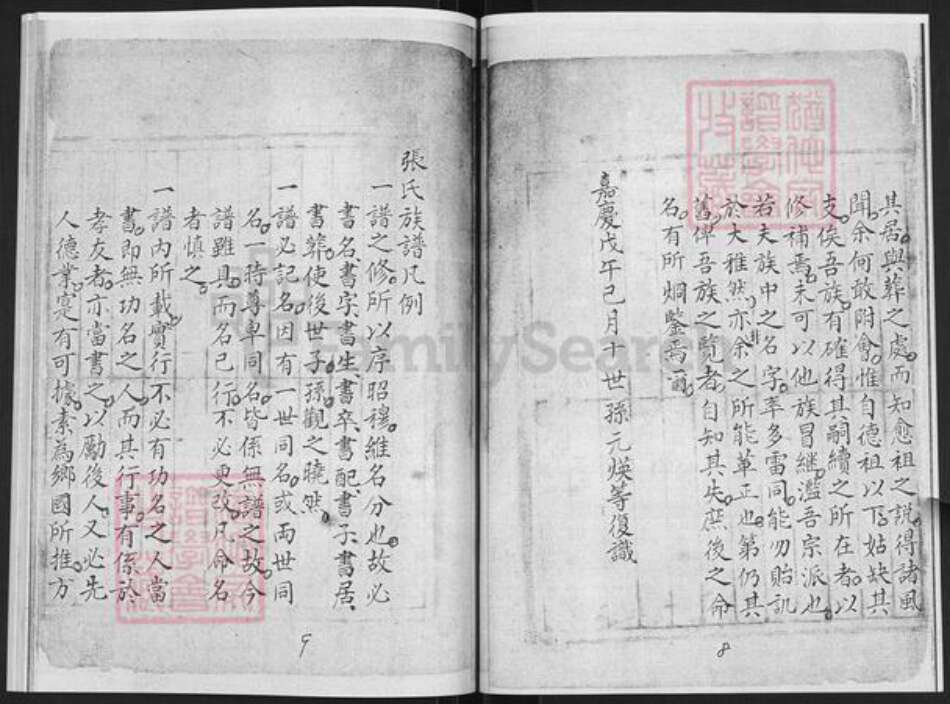 其居與葬之處而知愈祖之說得諸風
聞余何敢附會惟自德祖以下姑缺其
支俟吾族有確得其嗣續之所在者以
修補焉未可以他族冒継濫吾宗派也
若夫族中之名字率多雷同能勿貽訊
於大雅然亦非余之所能革正也第仍其
舊俾吾族之覽者自知其失庶後之命
名有所炯鑒焉爾
嘉慶戊午己月十世孫元煐等復識
8
張氏族譜凡例
一譜之修所以序昭穆維名分也故必
書名書字書生書卒書配書子書居
書葬使後世子孫觀之曉然
一譜必記名因有一世同名或両世同
名一時尊卑同名皆係無譜之故今
譜雖具而名已行不必更改凡命名
者慎之
一譜內所載實行不必有功名之人當
書即無功名之人而其行事有係於
孝友者亦當書之以勵後人又必先
人德業寔有可據素為鄉國所推方
9
FamilySearch